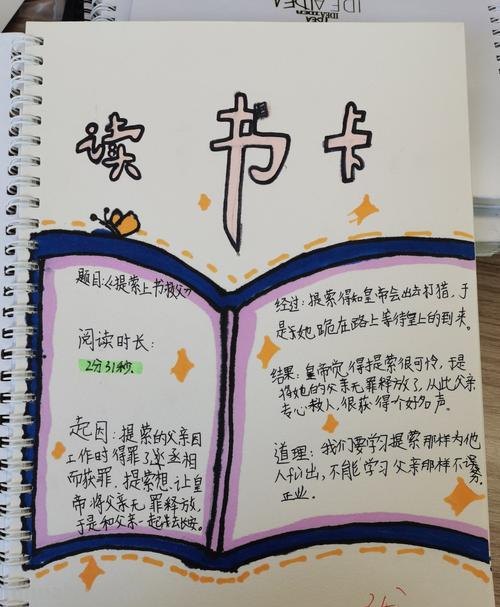 IDEA
IDEA
IDEAIDEA
读书卡
题目:《提索上书救父》
阅读时长:
2分31秒.
起因:提索的父亲因
工作时得罪了丞相
而获罪。提索想让皇
帝将父亲无罪释放,
于是和父亲一起去长安。
经过:提索得知皇帝会出去打猎,于
是她跪在路上等待皇上的到来。
结果:皇帝觉得提索很可怜,于是
将她的父亲无罪释放了,从此父亲
专心救人,很获得个好名声。
道理:我们要学习提索那样为他
人付出,不能学习父亲那样不务
正业.